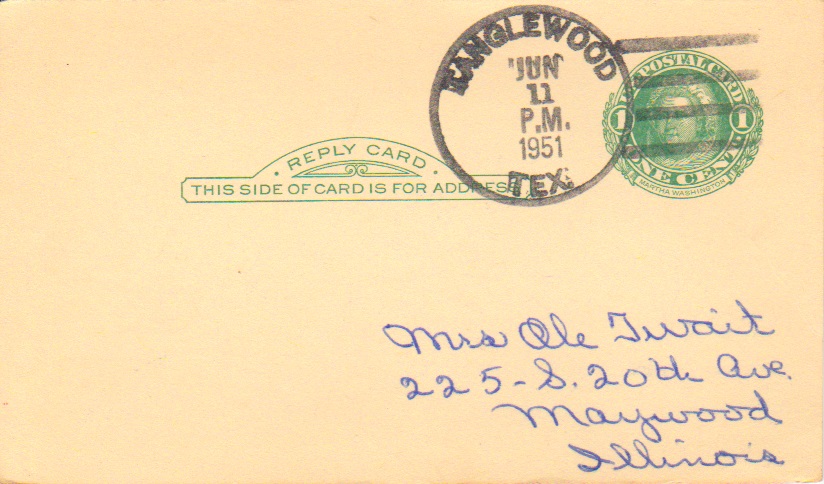 TANGLEWOOD
JUN
11
P.M.
1951
TEX.
U.S. POSTAL CARD
1 1
ONE CENT
MARTHA WASHINGTON
· REPLY CARD ·
THIS SIDE OF CARD IS FOR ADDRESS
Mrs Ole Twait
225-S. 20th Ave.
Maywood
Illinois